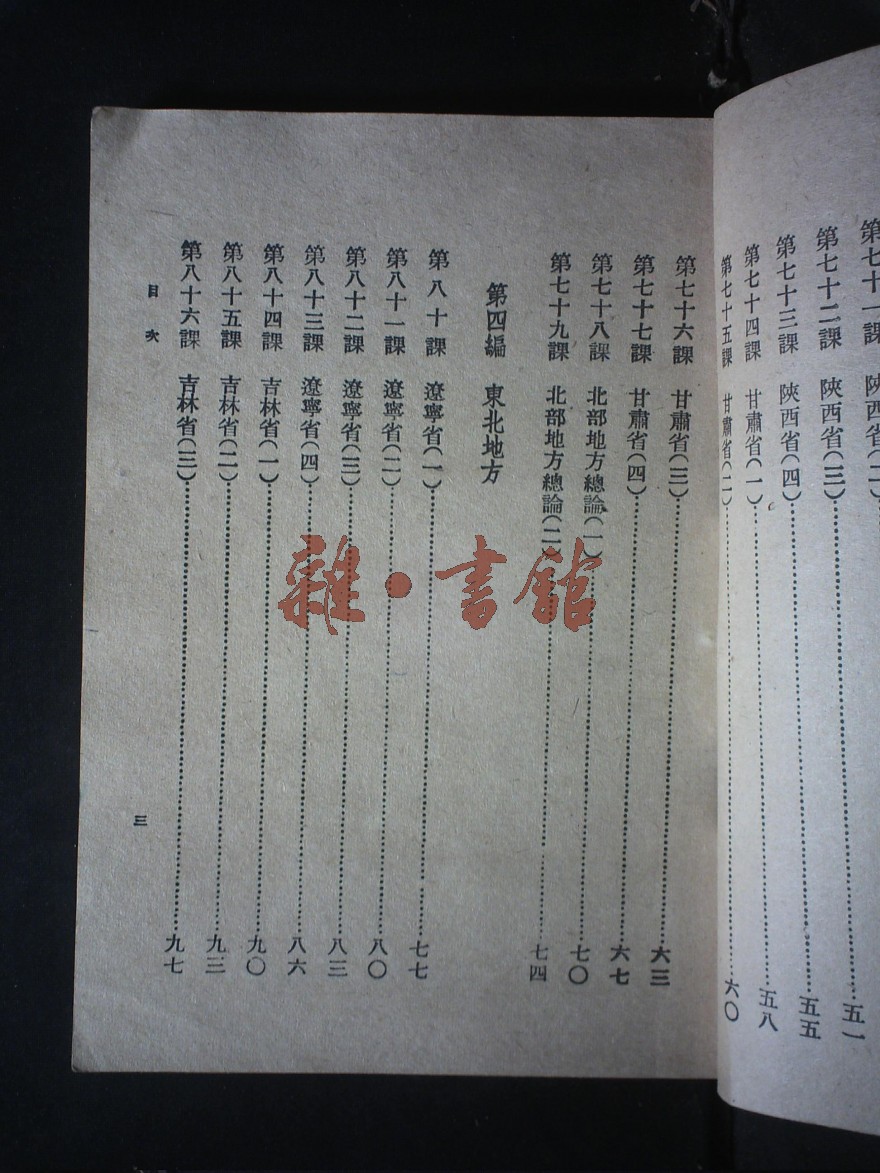 第七十一課 陝西省(二)
第七十二課 陝西省(三)……五一
第七十三課 陝西省(四)……五五
第七十四課 甘肅省(一)……五八
第七十五課 甘肅省(二)……六〇
第七十六課 甘肅省(三)……六三
第七十七課 甘肅省(四)……六七
第七十八課 北部地方總論(一)……七〇
第七十九課 北部地方總論(二)……七四
第四編 東北地方
第八十課 遼寧省(一)……七七
第八十一課 遼寧省(二)……八〇
第八十二課 遼寧省(三)……八三
第八十三課 遼寧省(四)……八六
第八十四課 吉林省(一)……九〇
第八十五課 吉林省(二)……九三
第八十六課 吉林省(三)……九七
目次 三
雜·書館